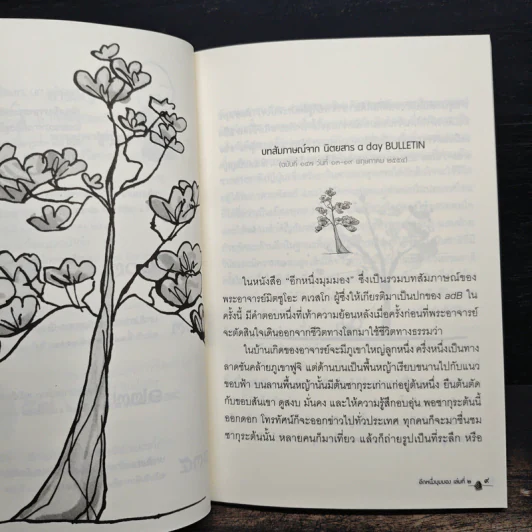 บทสัมภาษณ์จาก นิตยสาร a day BULLETIN
ในหนังสือ “อีกหนึ่งมุมมอง” ซึ่งเป็นรวมบทสัมภาษณ์ของ
พระอาจารย์มิตซูโอะ คเวสโก ผู้ซึ่งให้เกียรติมาเป็นปกของ adB ใน
ครั้งนี้ มีคำตอบหนึ่งที่เล่าความย้อนหลังเมื่อครั้งก่อนที่พระอาจารย์
จะตัดสินใจเดินออกจากชีวิตทางโลกมาใช้ชีวิตทางธรรมว่า
ในบ้านเกิดของอาจารย์จะมีภูเขาใหญ่ลูกหนึ่ง ครึ่งหนึ่งเป็นทาง
ลาดชันคล้ายภูเขาฟูจิ แต่ด้านบนเป็นพื้นหญ้าเรียบขนานไปกับแนว
ขอบฟ้า บนลานพื้นหญ้านั้นมีต้นซากุระเก่าแก่อยู่ต้นหนึ่ง ยืนต้นตัด
กับขอบสันเขา ดูสงบ มั่นคง และให้ความรู้สึกอบอุ่น พอซากุระต้นนี้
ออกดอก โทรทัศน์ก็จะออกข่าวไปทั่วประเทศ ทุกคนก็จะมาชื่นชม
ซากุระต้นนั้น หลายคนก็มาเที่ยว แล้วก็ถ่ายรูปเป็นที่ระลึก หรือ
อีกหนึ่งมุมมอง เล่มที่ ๒ ๙